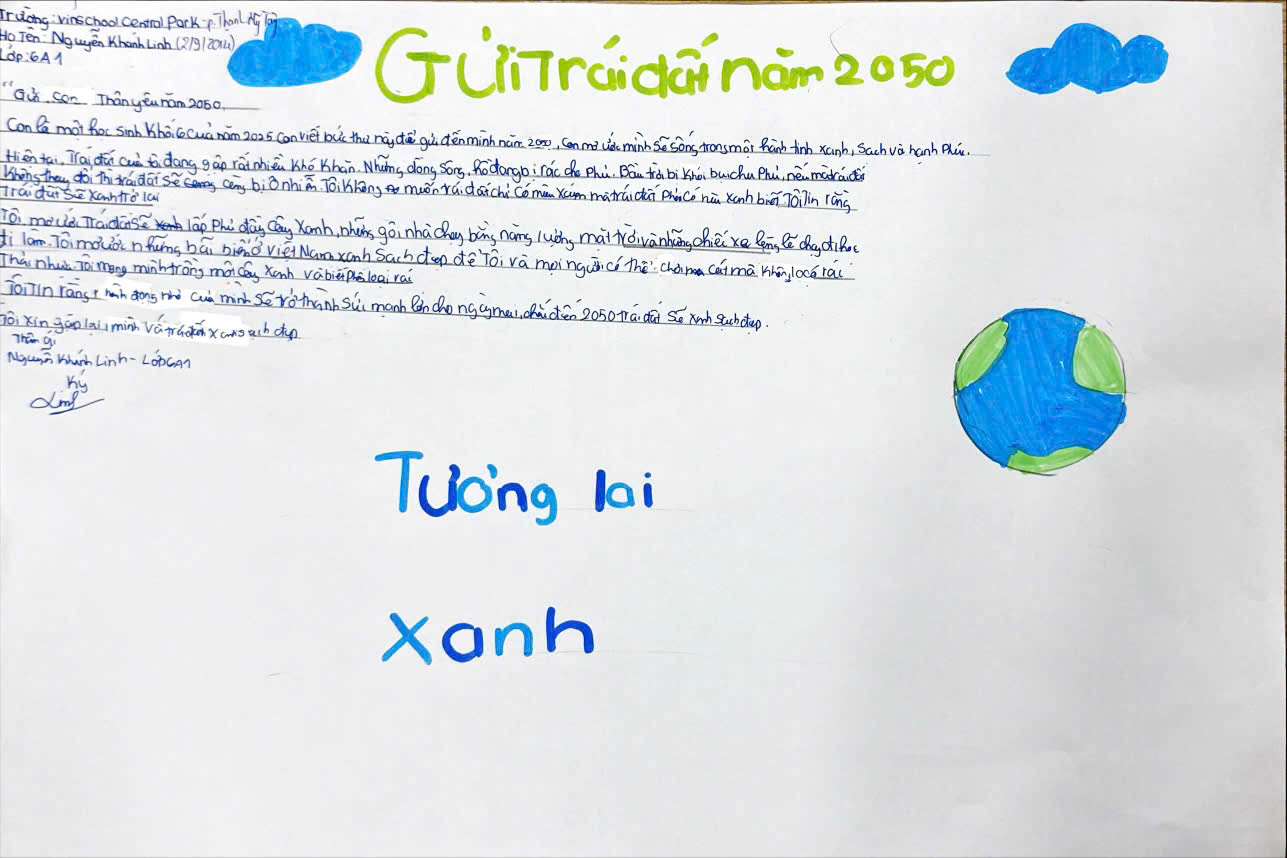 Trường: vinschool Central Park - p. Thạnh Mỹ Tây
Họ Tên: Nguyễn Khánh Linh (2/9/2014)
Lớp: 6A1
Gửi Trái đất năm 2050
"Gửi con Thân yêu năm 2050,
Con là một học sinh khối 6 của năm 2025 con viết bức thư này để gửi đến mình năm 2050, con mơ ước mình sẽ sống trong một hành tinh xanh, sạch và hạnh phúc.
Hiện tại, Trái đất của tôi đang gặp rất nhiều khó khăn. Những dòng sông, hồ đang bị rác che phủ. Bầu trời bị khói bụi che phủ, nếu mà trái đất
không thay đổi thì trái đất sẽ càng bị ô nhiễm. Tôi không muốn trái đất chỉ có màu xám mà trái đất phải có màu xanh biết Tôi tin rằng
Trái đất sẽ xanh trở lại
Tôi mơ ước Trái đất sẽ lấp phủ đầy cây xanh, những gôi nhà chạy bằng năng lượng mặt trời và những chiếc xe lặng lẽ chạy đi học
đi làm. Tôi mơ ước những bãi biển ở việt Nam xanh sạch đẹp để Tôi và mọi người có thể chơi cát mà không lo có rác
Thải nhựa. Tôi mong mình trồng một cây xanh và biết phân loại rác
Tôi Tin rằng, hành động nhỏ của mình sẽ trở thành sức mạnh lớn cho ngày mai, chắc đến 2050 trái đất sẽ xanh sạch đẹp.
Tôi xin gặp lại mình và trái đất xanh sạch đẹp
Thân gửi
Nguyễn Khánh Linh - Lớp 6A1
Ký
Linh
Tương lai
xanh